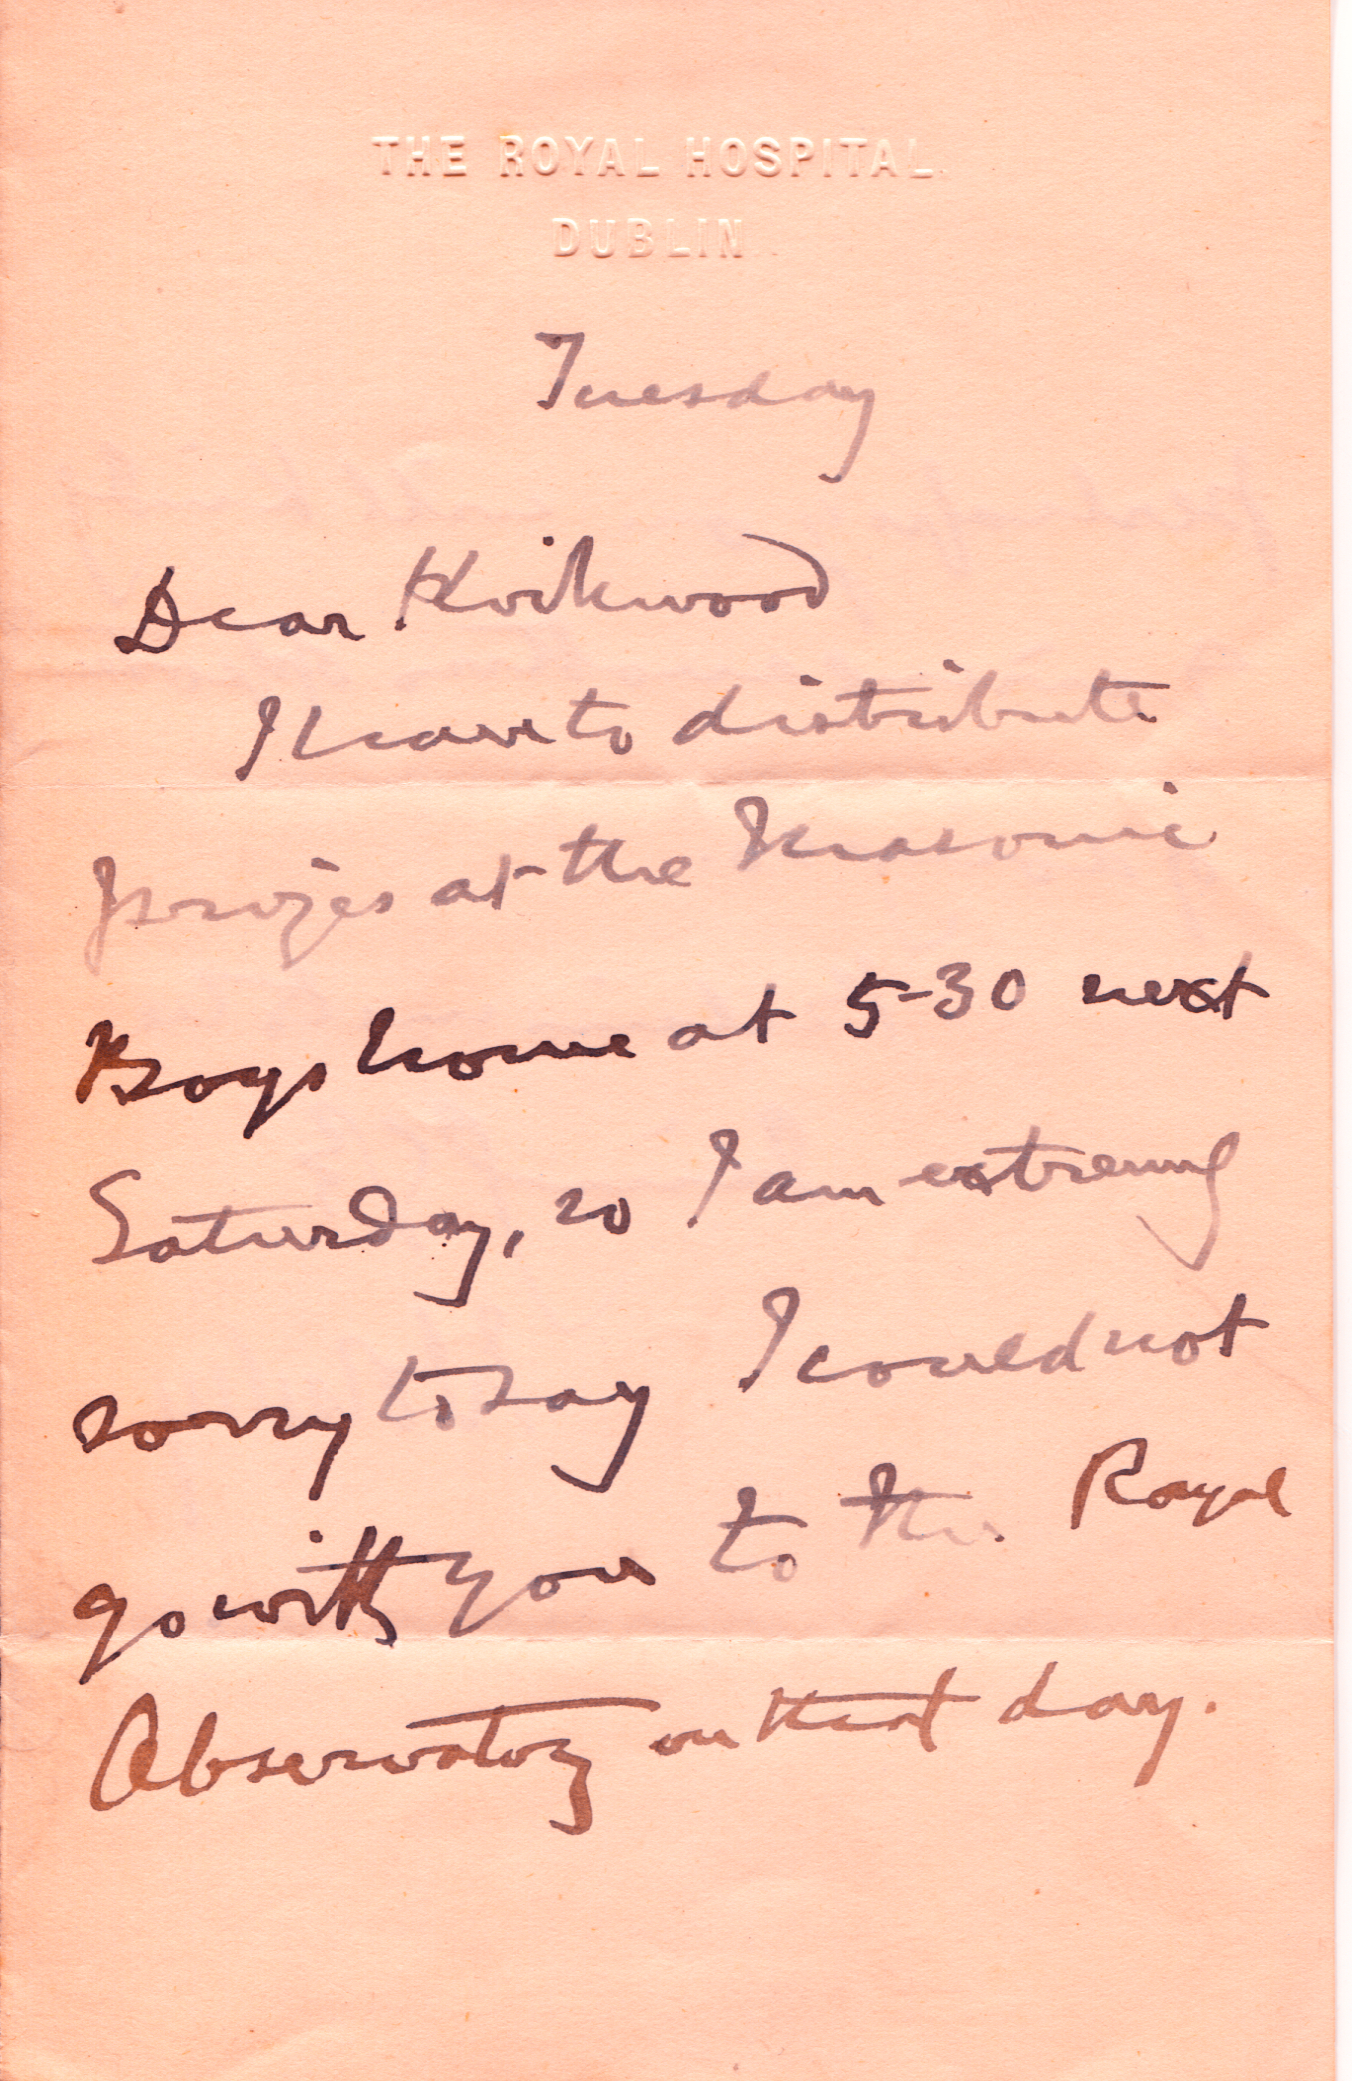 THE ROYAL HOSPITAL
DUBLIN
Tuesday
Dear Kirkwood
I have to distribute
prizes at the Masonic
Boys home at 5-30 next
Saturday, so I am extremely
sorry to say I could not
go with you to the Royal
Observatory on that day.